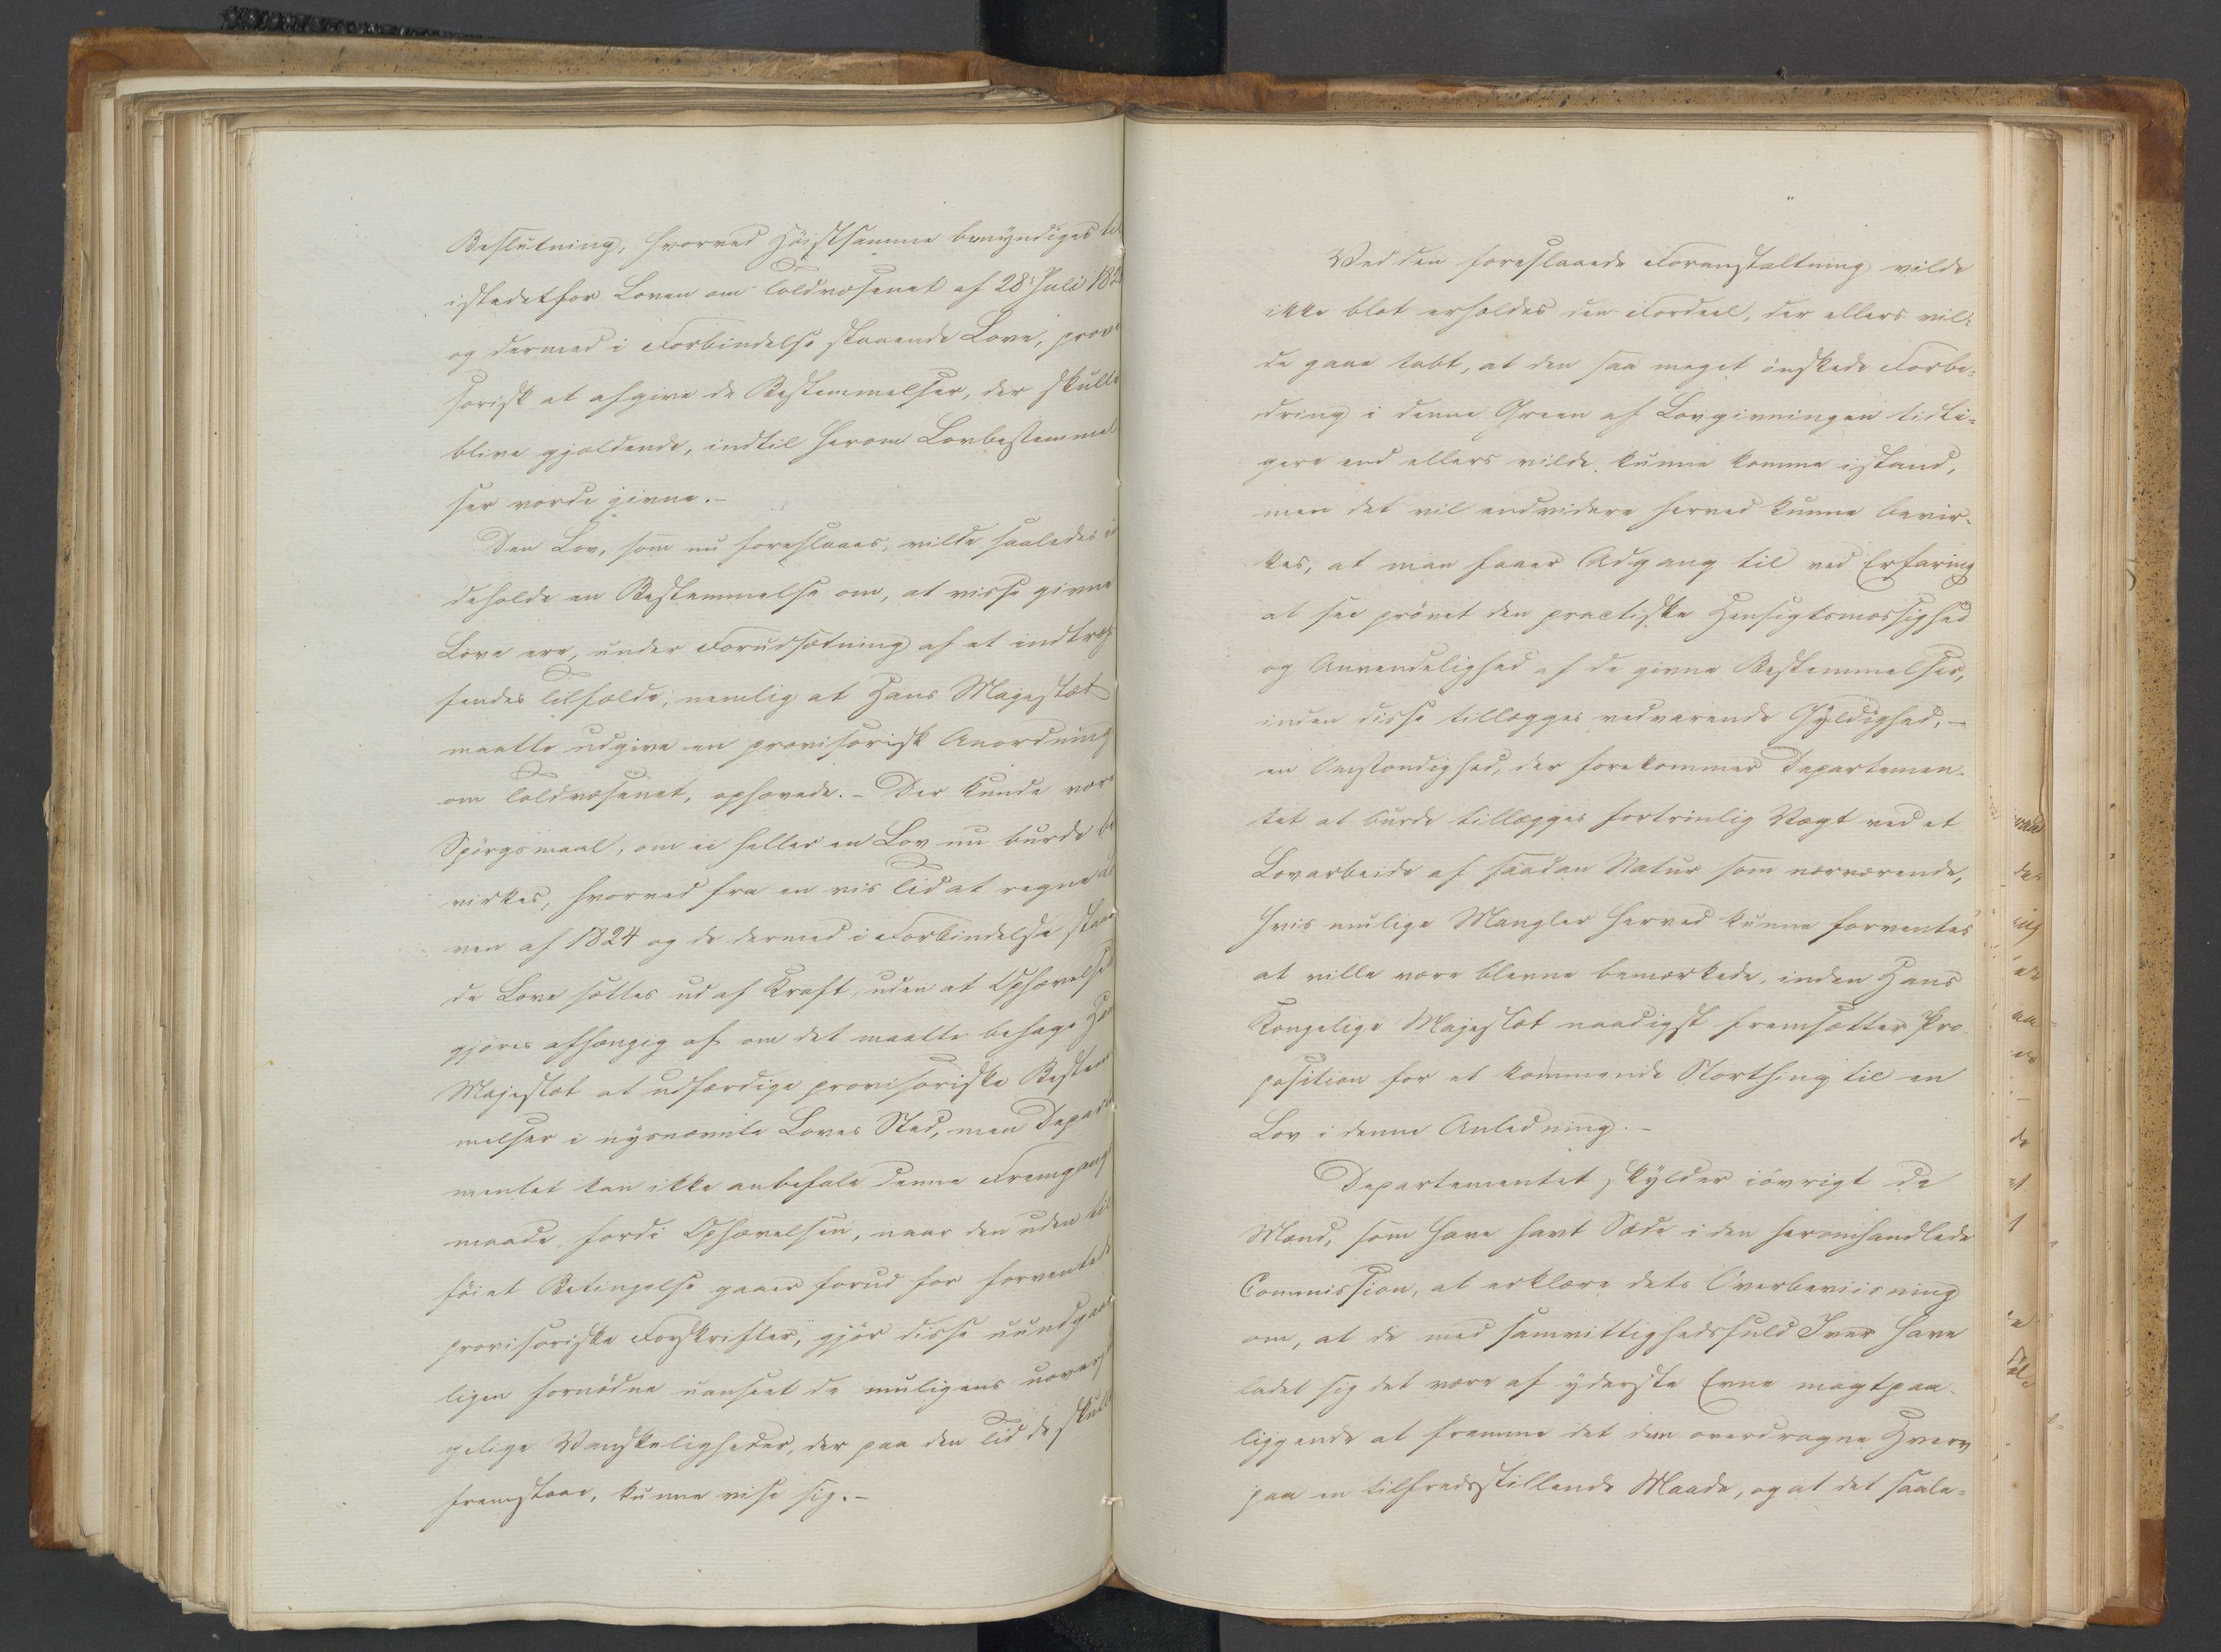 Beslutning, hvorved Höistsamme bemyndiges til
istedetfor Loven om Toldvæsenet af 28 Juli 182
og dermed i Forbindelse staaende Love, provi
sorisk at afgive de Bestemmelser, der skulle
blive gjældende, indtil herom Lovbestemmel
ser vorde givne.-
Den Lov, som nu foreslaaes, vilde saaledes in
deholde en Bestemmelse om, at visse givne
Love ere, under Forudsætning af et indtræf
fendes Tilfælde, nemlig at Hans Majestæt
maatte udgive en provisorisk Anordning
om Toldvæsenet, ophævede.- Der kunde være
Spörgsmaal, om ei heller en Lov nu burde be
virkes, hvorved fra en vis Tid at regne
ven af 1824 og de dermed i Forbindelse staaen
de Love sættes ud af Kraft, uden at Ophævelsen
gjöres afhængig af om det maatte behage Hans
Majestæt at udfærdige provisoriske Bestem
melser i nysnævnte Loves Sted, men Departe
mentet kan ikke anbefale denne Fremgangs
maade, fordi Ophævelsen, naar den uden til
föiet Betingelse gaaer forud for forventede
provisoriske Forskrifter, gjör disse uundgaae
ligen fornödne uanseet de muligens uoversti
gelige Vanskeligheder, der paa den Tid de skulle
fremstaae, kunne vise sig.-
Ved den foreslaaede Foranstaltning vilde
ikke blot erholdes den Fordeel, der ellers vil-
de gaae tabt, at den saa meget önskede Forbe-
dring i denne Green af Lovgivningen tidli-
gere end ellers vilde kunne komme istand,
men det vil endvidere herved kunne bevir-
kes, at man faaer Adgang til ved Erfaring
at see prövet den practiske Hensigtsmæssighed
og Anvendelighed af de givne Bestemmelser,
inden disse tillægges vedvarende Gyldighed, -
en Omstændighed, der forekommer Departemen-
tet at burde tillægges fortrinlig Vægt ved et
Lovarbeide af saadan Natur som nærværende,
hvis mulige Mangler herved kunne forventes
at ville være blevne bemærkede, inden Hans
Kongelige Majestæt naadigst fremsætter Pro-
position for et kommende Storthing til en
Lov i denne Anledning.-
Departementet skylder iövrigt de
Mænd, som have havt Sæde i den heromhandlede
Commission, at erklære dets Overbeviisning
om, at de med samvittighedsfuld Iver have
ladet sig det være af yderste Evne magtpaa-
liggende at fremme det dem overdragne Hverv
paa en tilfredsstillende Maade, og at det saale-